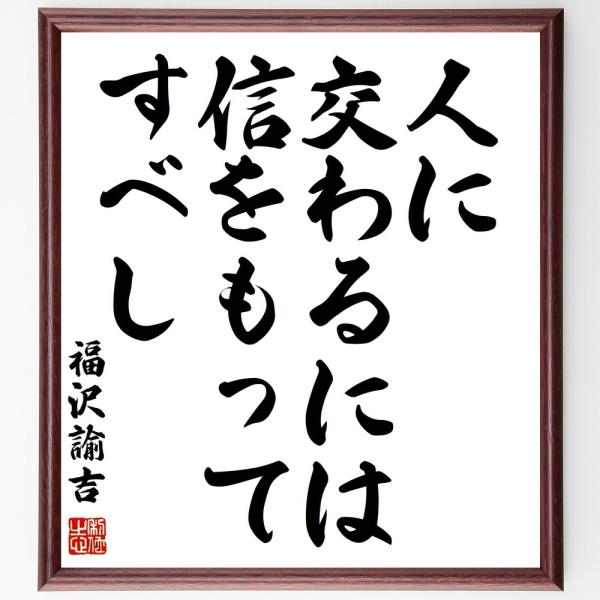 人に
交わるには
信をもって
すべし
福沢諭吉